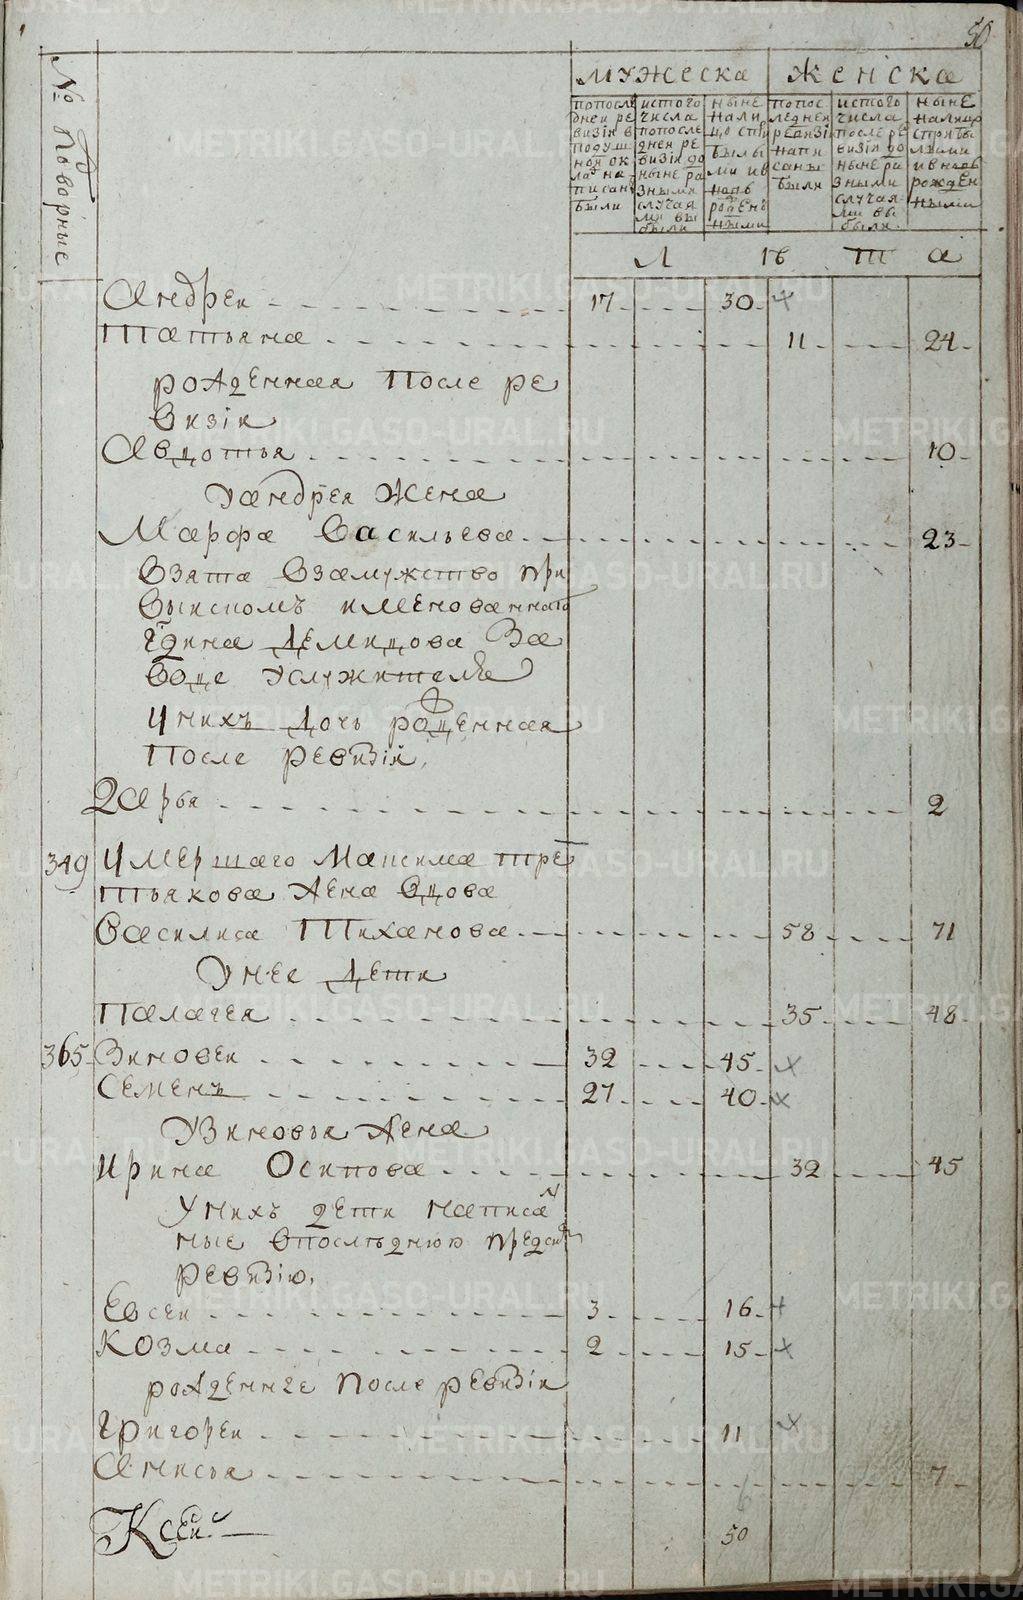 50
№ поворные
мужеска женска
попосле
дней ре
визiи в
подуш
ной ок
лад на
писаны
были
истого
числа
попосле
дней ре
визiи до
ныне ра
зными
случая
ми вы
были
ныне
нали
цо с при
былы
ми и в
новь
рожден
ными
попос
ледней
ревизiи
напи
саны
были
истого
числа
после ре
визiи до
ныне ра
зными
случая
ми вы
были
ныне
налицо
с прибы
лыми
и вновь
рожден
ными
Л ѣ т а
Андреи 17 30
Татьяна 11 24
рожденная после ре
визiи
Авдотья 10
У Андрея жена
Марфа Васильева 23
взята взамужство при
вышепомъ именованнаго
гдина Демидова за
воде у служителя
У нихъ дочь рожденная
после ревизiи
Дарья 2
349 Умершаго Максима Тре
тьякова жена вдова
Василиса Тиханова 58 71
У нее дети
Палагея 35 48
365 Зиновеи 32 45
Семенъ 27 40
У Зиновья жена
Ирина Осипова 32 45
У нихъ дети написан
ные впоследнюю пред сим
ревизiю
Евсеи 3 16
Козма 2 15
рожденные после ревизiи
Григореи 11
Анисья 7
6
50